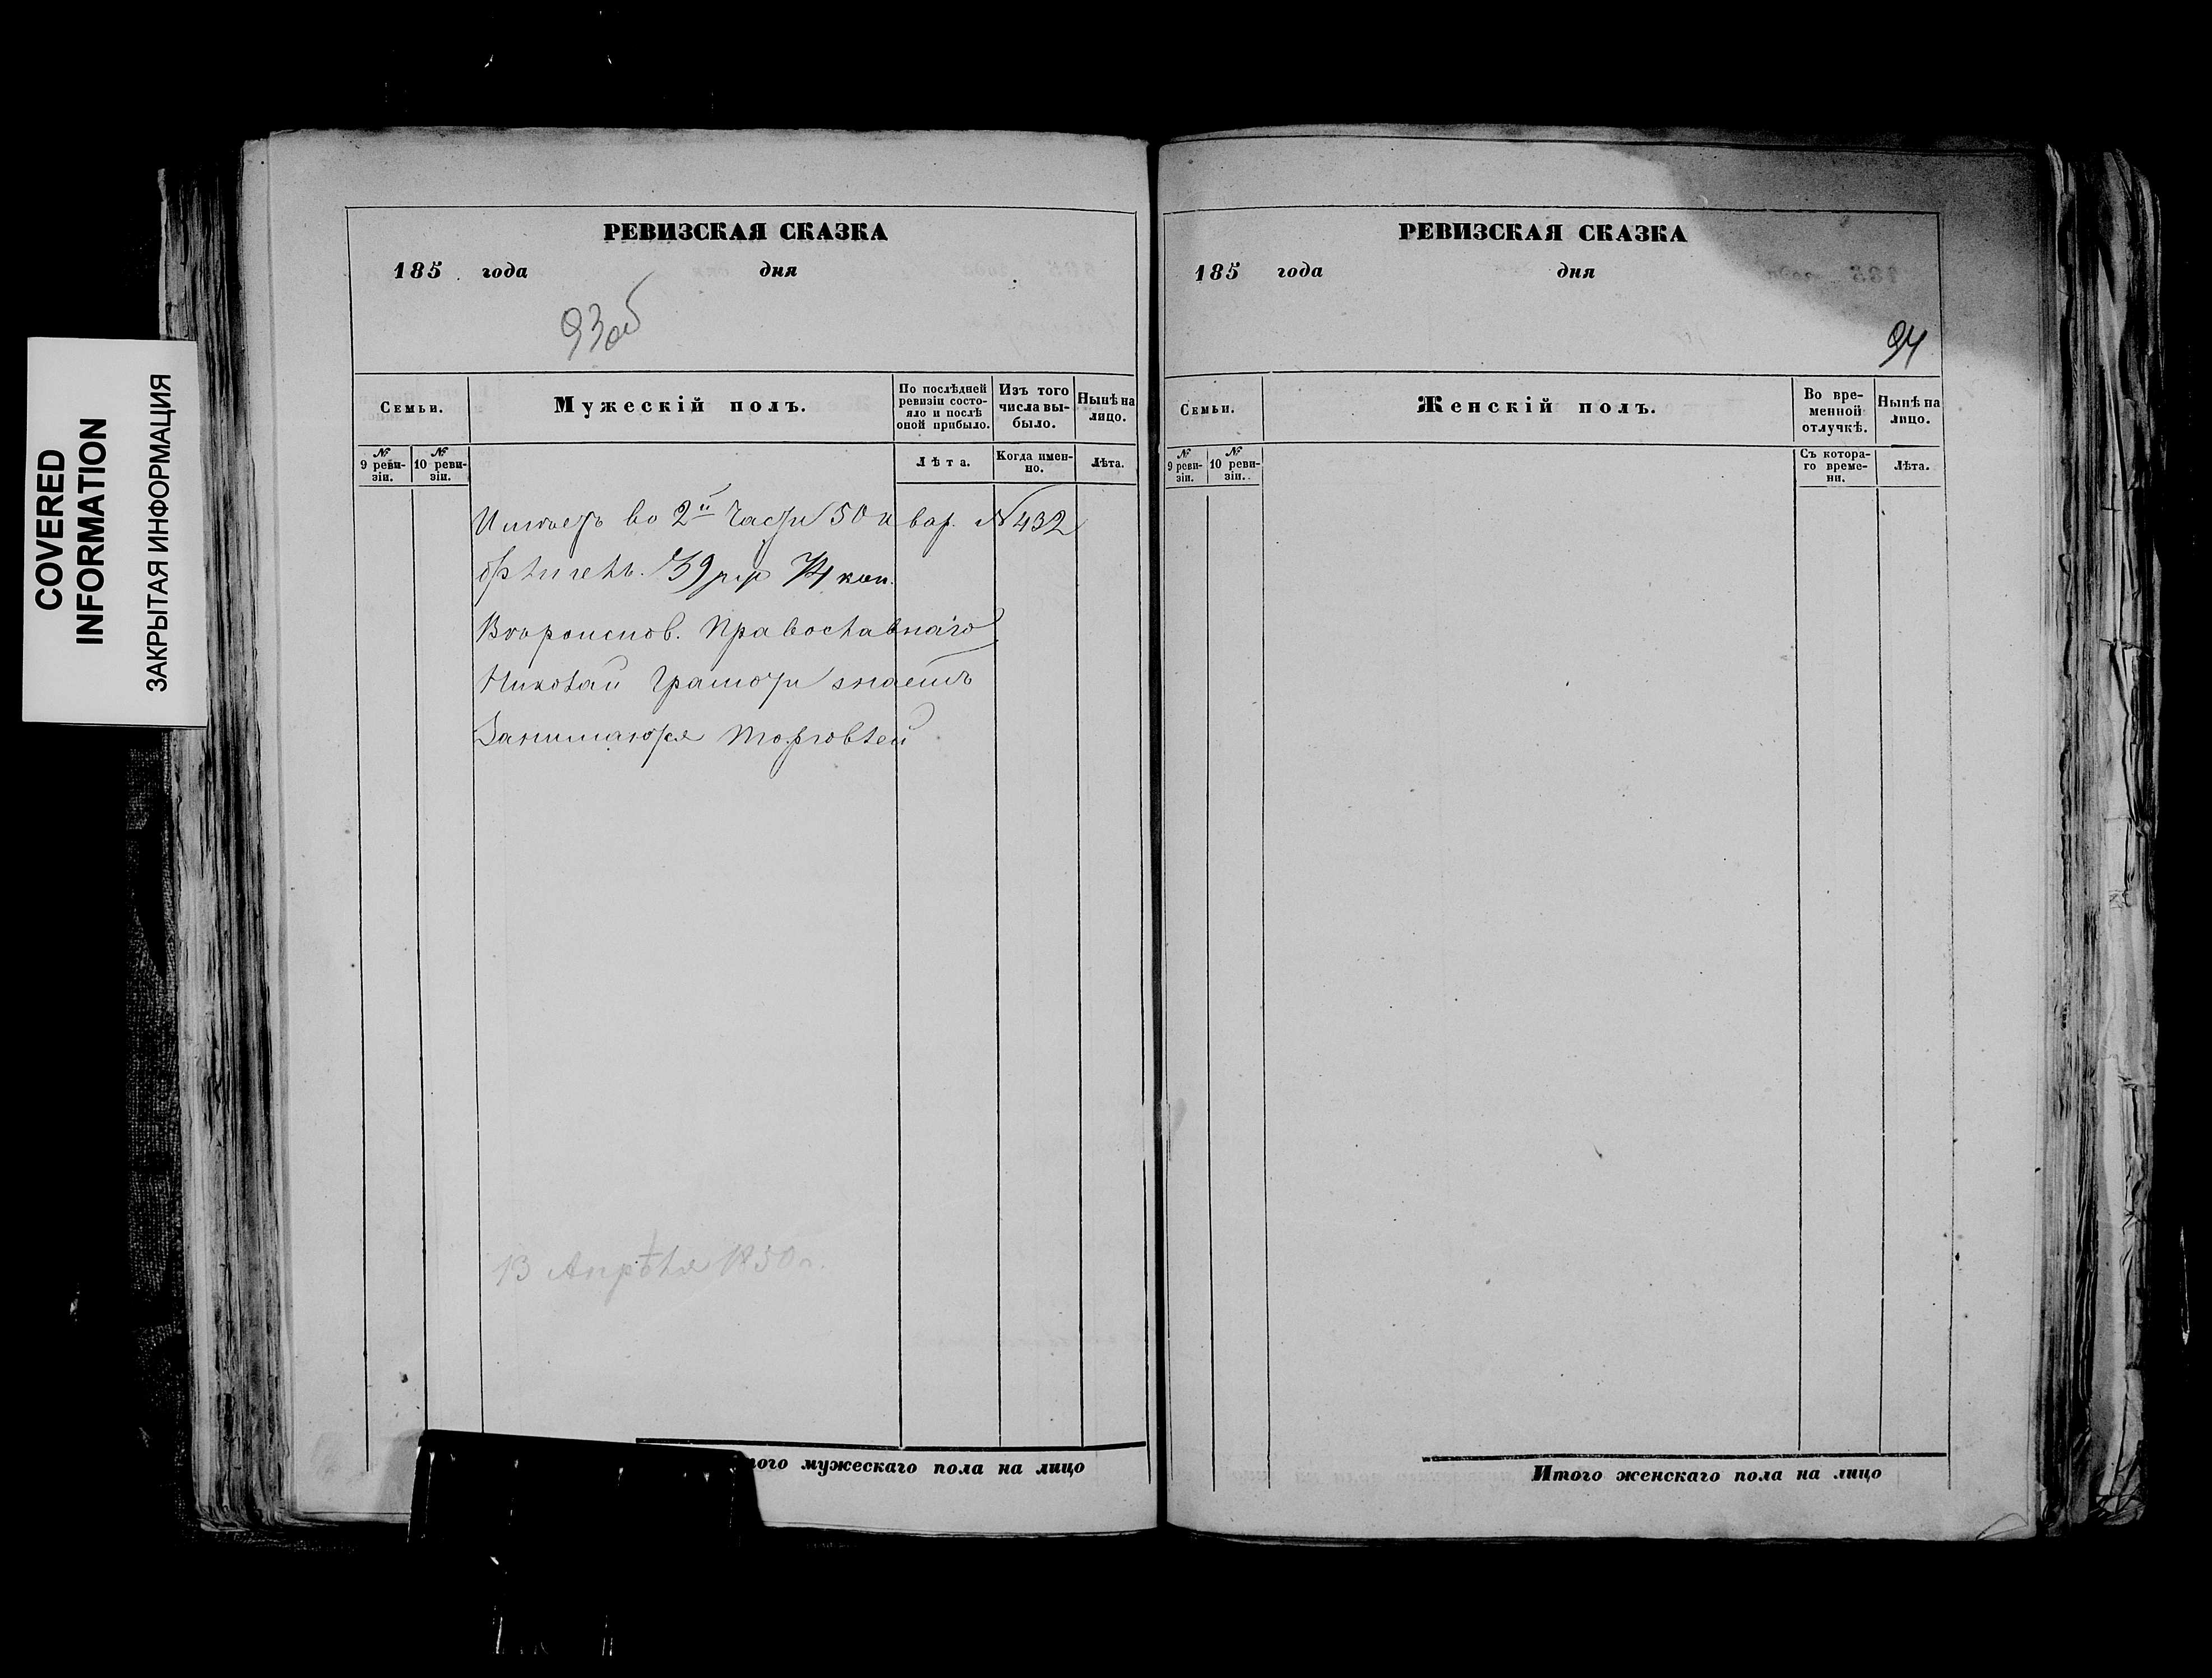 COVERED
INFORMATION
ЗАКРЫТАЯ ИНФОРМАЦИЯ
РЕВИЗСКАЯ СКАЗКА
185 года дня
93об
Семьи.
Мужескій полъ.
По послѣдней ревизіи состо-
яло и послѣ
оной прибыло.
Изъ того
числа вы-
было.
Нынѣ на
лицо.
№
9 реви-
зіи.
№
10 реви-
зіи.
Лѣта.
Когда имен-
но.
Лѣта.
во 2й части 50 квар. № 432
39 74 коп.
Вѣроиспов. Православнаго
Николай грамоти знаетъ
Занимаются торговлей
13 Апрѣля 1850 г.
ого мужескаго пола на лицо
РЕВИЗСКАЯ СКАЗКА
185 года дня
94
Семьи.
Женскій полъ.
Во вре-
менной
отлучкѣ.
Нынѣ на
лицо.
№
9 реви-
зіи.
№
10 реви-
зіи.
Съ котора-
го време-
ни.
Лѣта.
Итого женскаго пола на лицо